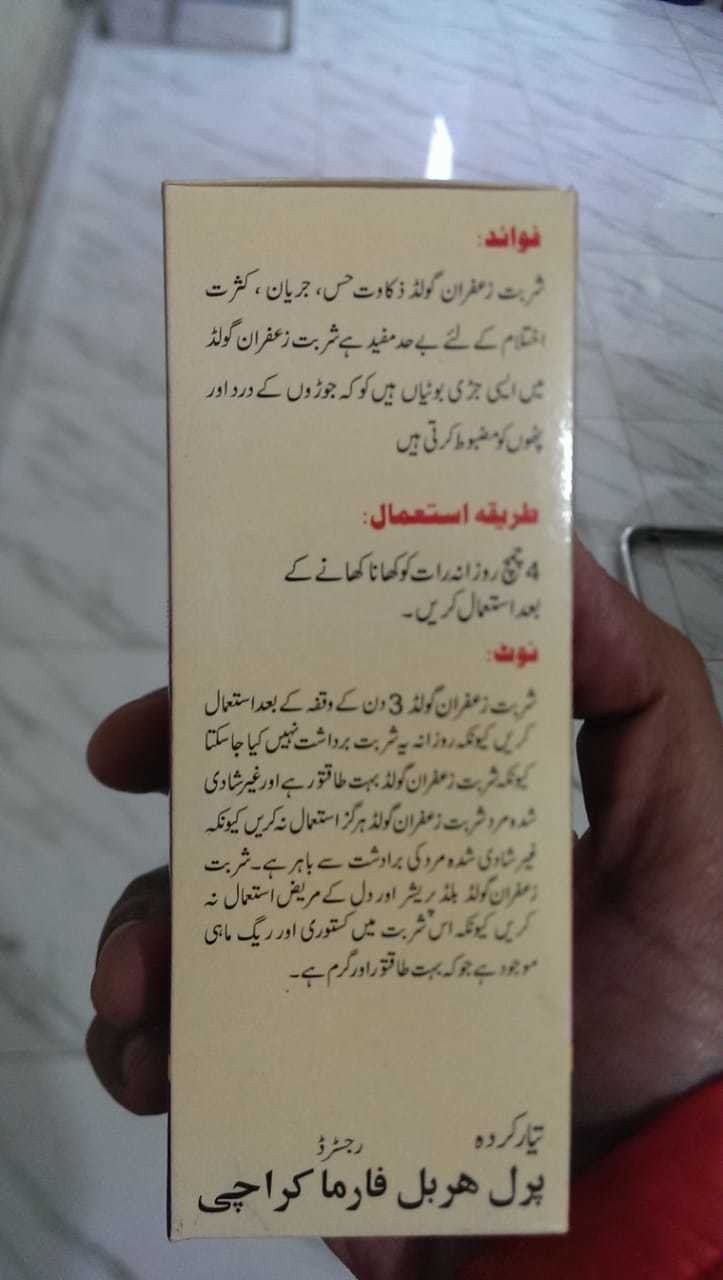 فوائد:
شربت زعفران گولڈ ذکاوت حس، جریان ، کثرت
احتلام کے لئے بے حد مفید ہے شربت زعفران گولڈ
میں ایسی جڑی بوٹیاں ہیں کو کہ جوڑوں کے درد اور
پٹھوں کو مضبوط کرتی ہیں
طریقہ استعمال:
4 چمچ روزانہ رات کو کھانا کھانے کے
بعد استعمال کریں۔
نوٹ:
شربت زعفران گولڈ 3 دن کے وقفہ کے بعد استعمال
کریں کیونکہ روزانہ یہ شربت برداشت نہیں کیا جا سکتا
کیونکہ شربت زعفران گولڈ بہت طاقتور ہے اور غیر شادی
شدہ مرد شربت زعفران گولڈ ہرگز استعمال نہ کریں کیونکہ
غیر شادی شدہ مرد کی برادشت سے باہر ہے۔ شربت
زعفران گولڈ بلڈ پریشر اور دل کے مریض استعمال نہ
کریں کیونکہ اس شربت میں کستوری اور ریگ ماہی
موجود ہے جو کہ بہت طاقتور اور گرم ہے۔
تیار کردہ
رجسٹرڈ
پرل ھربل فارما کراچی